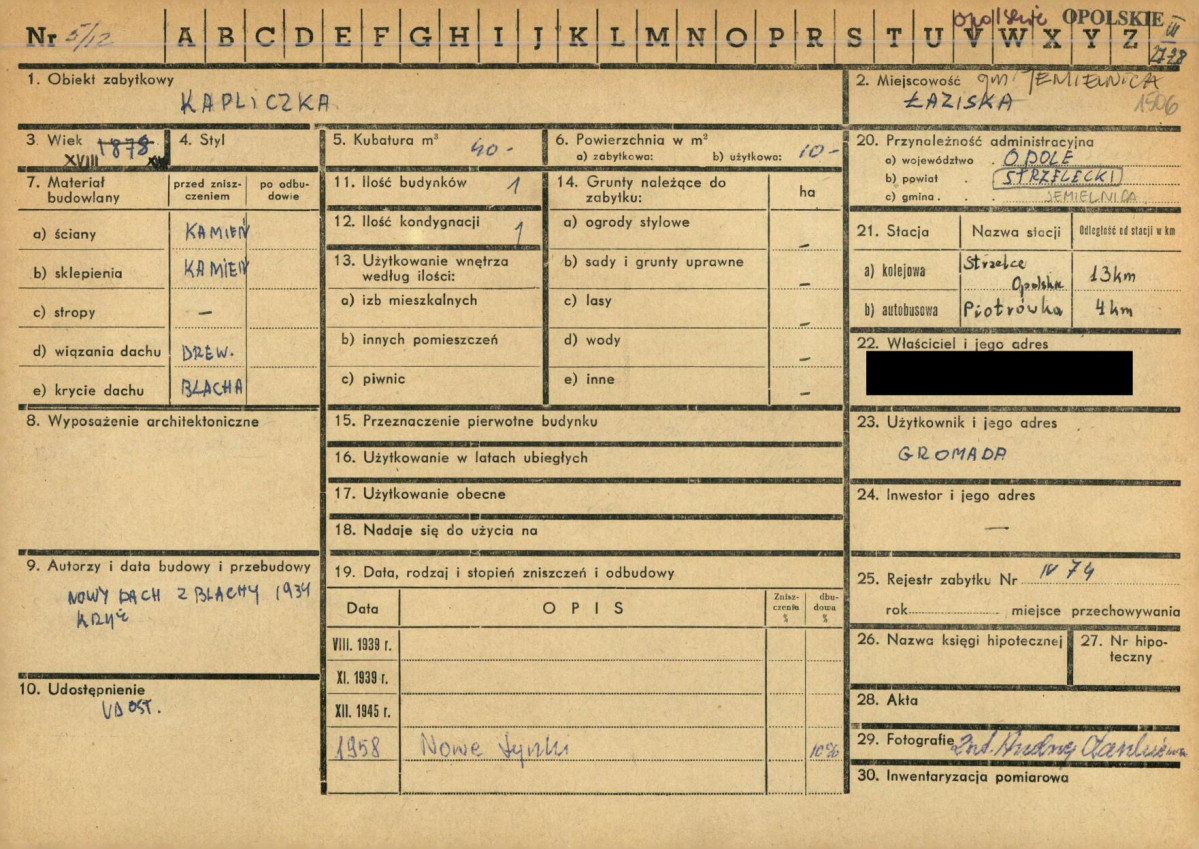 Nr 5/12 A B C D E F G H I J K L M N O P R S T U V W X Y Z
opolskie OPOLSKIE
III
1. Obiekt zabytkowy
KAPLICZKA
2. Miejscowość gm. JEMIELNICA
ŁAZISKA 1506
3. Wiek 1878
XVIII
4. Styl
5. Kubatura m³ 40-
6. Powierzchnia w m²
a) zabytkowa: b) użytkowa: 10-
7. Materiał budowlany
przed zniszczeniem
po odbudowie
a) ściany KAMIEŃ
b) sklepienia KAMIEŃ
c) stropy –
d) wiązania dachu DREW.
e) krycie dachu BLACHA
8. Wyposażenie architektoniczne
9. Autorzy i data budowy i przebudowy
NOWY DACH Z BLACHY 1934
KRYĆ
10. Udostępnienie
UDOST.
11. Ilość budynków 1
12. Ilość kondygnacji 1
13. Użytkowanie wnętrza
według ilości:
a) izb mieszkalnych
b) innych pomieszczeń
c) piwnic
14. Grunty należące do
zabytku:
ha
a) ogrody stylowe –
b) sady i grunty uprawne –
c) lasy –
d) wody –
e) inne –
15. Przeznaczenie pierwotne budynku
16. Użytkowanie w latach ubiegłych
17. Użytkowanie obecne
18. Nadaje się do użycia na
19. Data, rodzaj i stopień zniszczeń i odbudowy
Data OPIS Zniszczenia % dbudowa %
VIII. 1939 r.
XI. 1939 r.
XII. 1945 r.
1958 Nowe tynki 10%
20. Przynależność administracyjna
a) województwo . OPOLE
b) powiat . . STRZELECKI
c) gmina . . . JEMIELNICA
21. Stacja Nazwa stacji Odległość od stacji w km
a) kolejowa Strzelce Opolskie 13km
b) autobusowa Piotrówka 4km
22. Właściciel i jego adres
23. Użytkownik i jego adres
GROMADA
24. Inwestor i jego adres
—
25. Rejestr zabytku Nr IV 74
rok miejsce przechowywania
26. Nazwa księgi hipotecznej
27. Nr hipoteczny
28. Akta
29. Fotografie
30. Inwentaryzacja pomiarowa